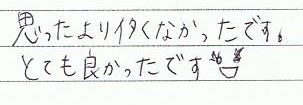 思ったよりイタくなかったです。
とても良かったです